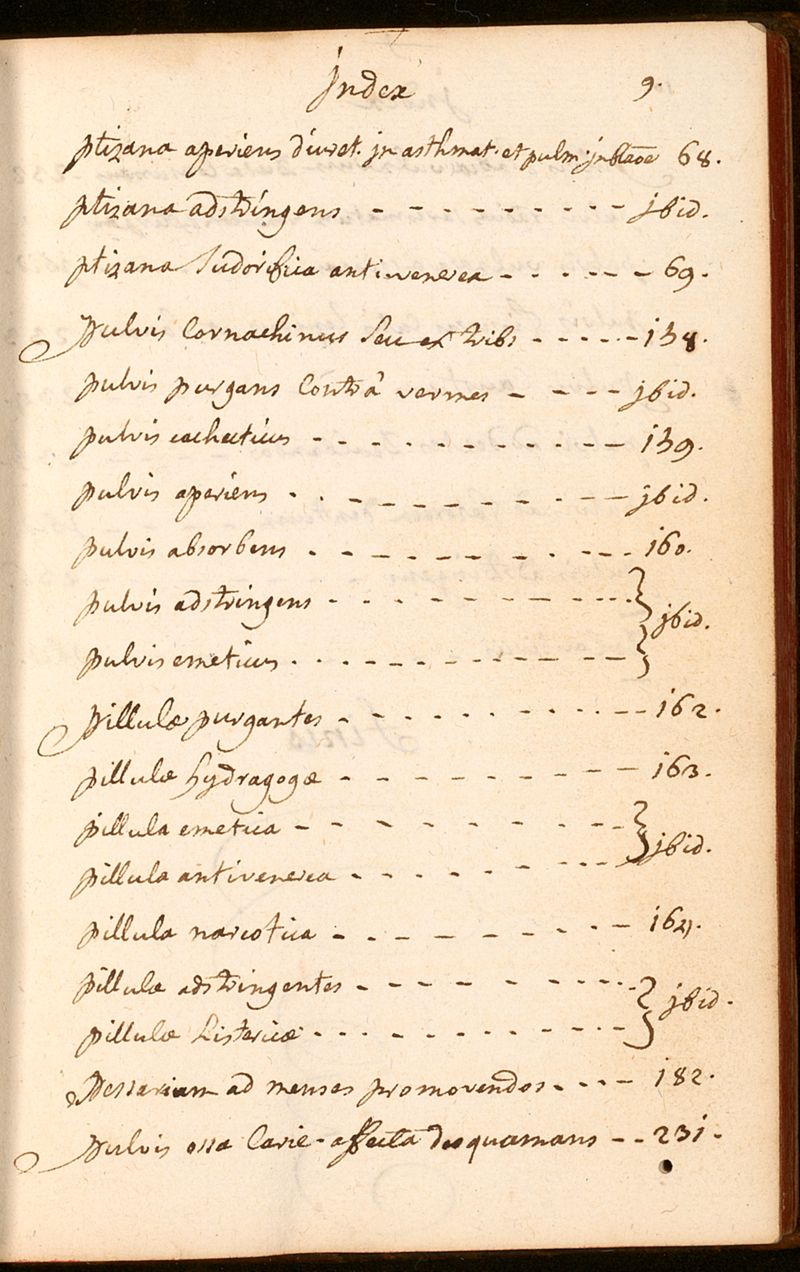 jndex 9.
ptizana aperiens diuret. jn asthmat. et pulm. 68.
ptizana adstringens - - - - - - - - - jbid.
ptizana Sudorifica antivenerea - - - - - - 69.
Pulvis Cornachinus seu ex tribs - - - - - - 158.
pulvis purgans Contrà vermes - - - - jbid.
pulvis cachecticus - - - - - - - - - - - 159.
pulvis aperiens - - - - - - - - - - - jbid.
pulvis absorbens - - - - - - - - - - - 160.
pulvis adstringens - - - - - - - - - - -
jbid.
pulvis emeticus - - - - - - - - - - -
pillulæ purgantes - - - - - - - - - - - 162.
pillulæ hydragogæ - - - - - - - - - - 163.
pillula emetica - - - - - - - - - -
jbid.
pillula antivenerea - - - - - - - - - -
pillula narcotica - - - - - - - - - - 164.
pillulæ adstringentes - - - - - - - - -
jbid.
pillulæ histericæ - - - - - - - - - - -
Pessarium ad menses promovendos - - - - 182.
Pulvis ossa Carie affecta desquamans - - 231.